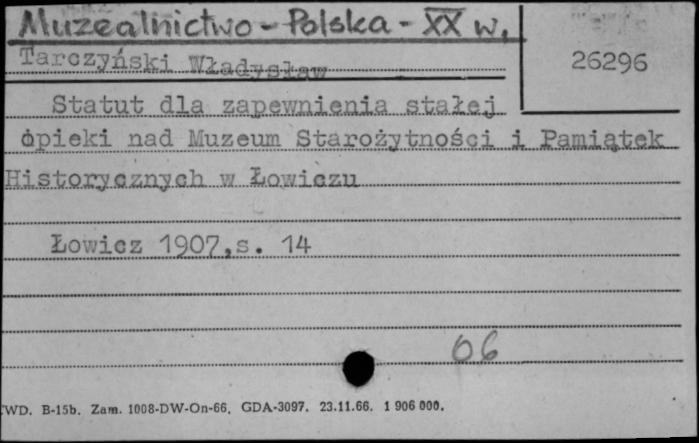 Muzealnictwo - Polska - XX w.
26296
Tarczyński Władysław
Statut dla zapewnienia stałej
opieki nad Muzeum Starożytności i Pamiątek
Historycznych w Łowiczu
Łowicz 1907,s. 14
06
WD. B-15b. Zam. 1008-DW-On-66. GDA-3097. 23.11.66. 1 906 000.